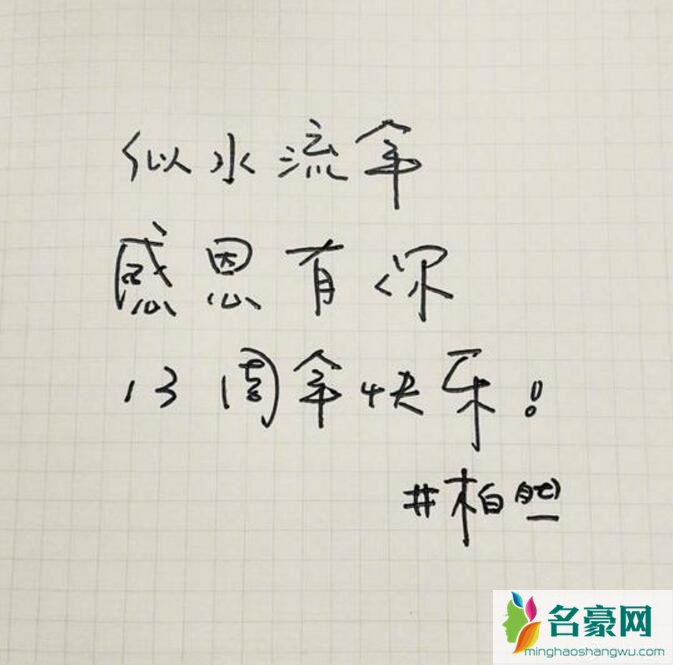 似水流年
感恩有你
13周年快乐!
#柏然
名豪网
minghaoshangwu.com